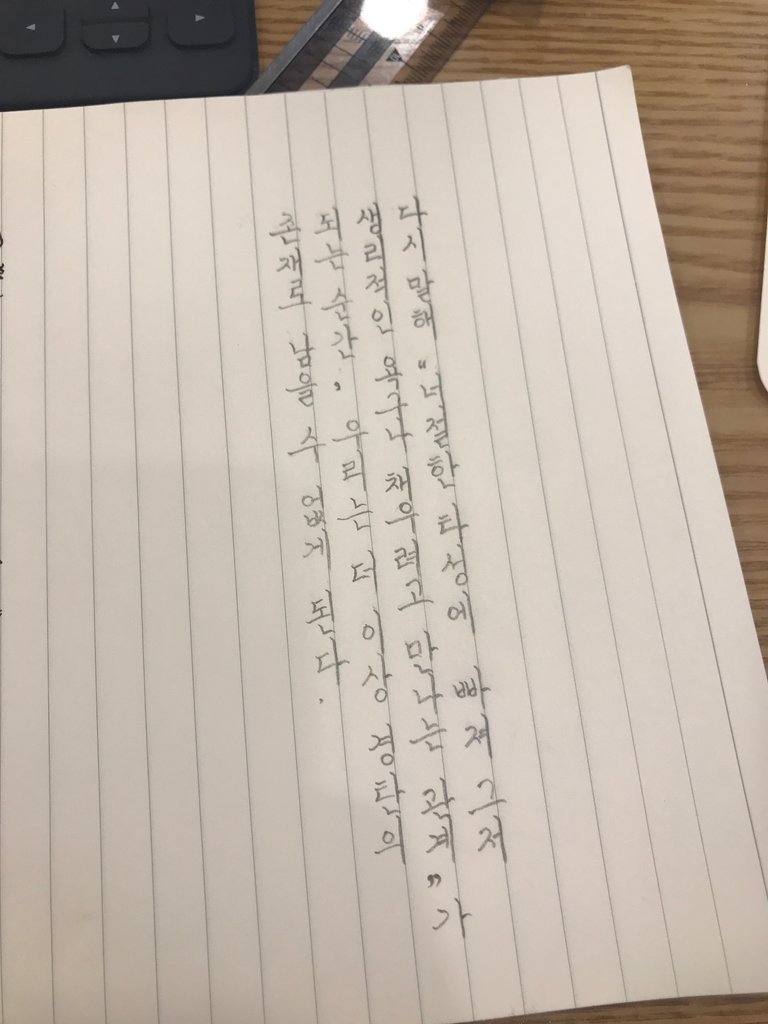 다시 말해 “너절한 타성에 빠져 그저
생리적인 욕구나 채우려고 만나는 관계”가
되는 순간, 우리는 더 이상 경탄의
존재로 남을 수 없게 된다.